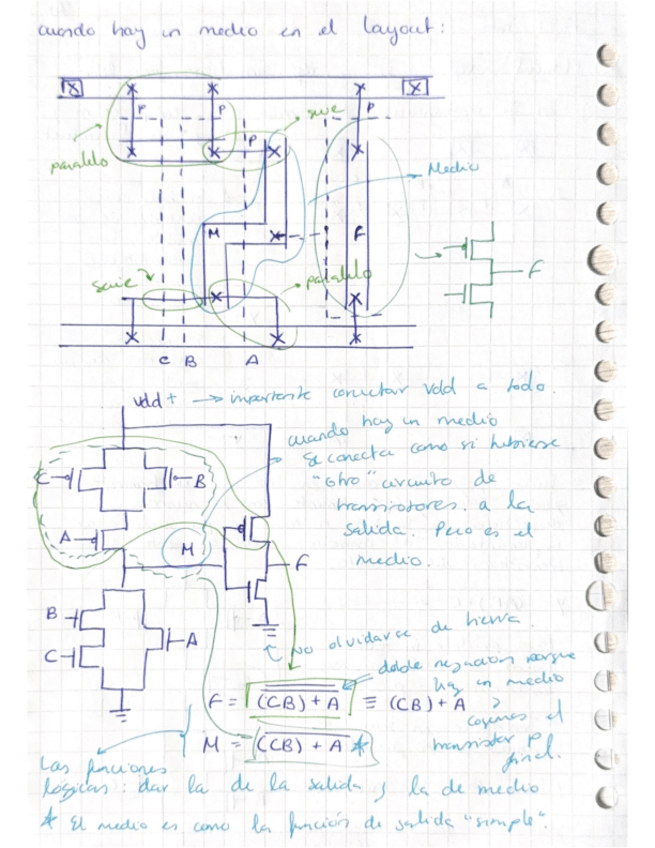 cuando hay un medio en el layout:
P P P
serie
paralelo
P
Medio
M F
F
serie
paralelo
C B A
Vdd + → importante conectar Vdd a todo.
cuando hay un medio
se conecta como si hubiese
"otro" circuito de
transistores a la
salida. Pero es el
medio.
C B
A
M
F
B
C A
No olvidarse de tierra.
doble negación porque
hay un medio
F = (CB) + A ≡ (CB) + A
cogemos el
transistor P
final.
M = (CB) + A *
Las funciones
lógicas: dar la de la salida y la de medio
* El medio es como la función de salida "simple".